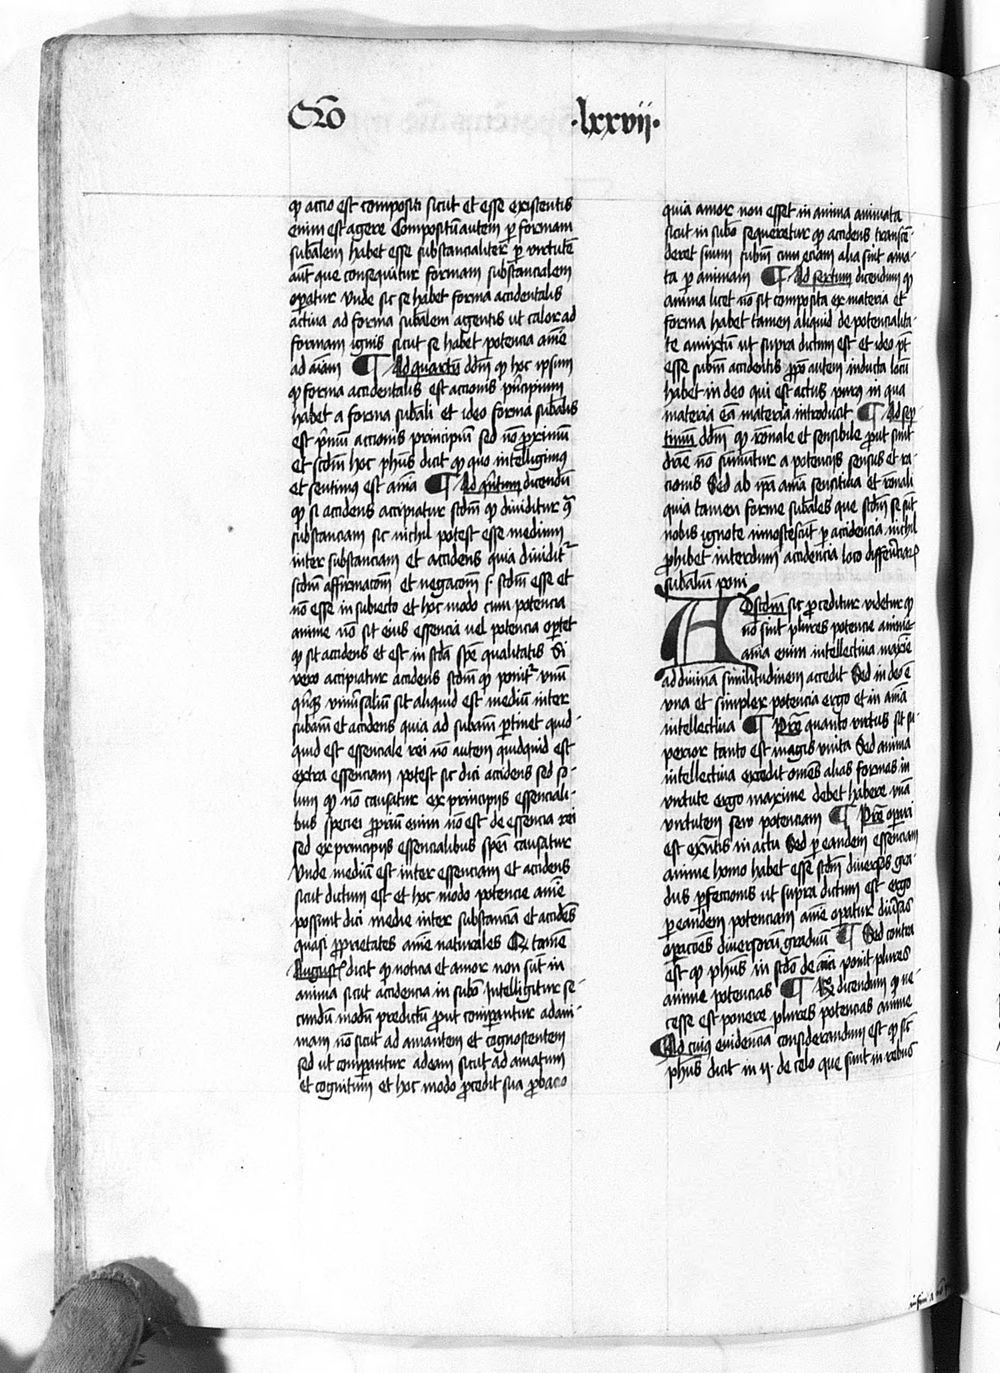 Qõ
·lxxvij·
qꝫ actio est compositi sicut et esse existentis
enim est agere Compositũ autem ꝑ formam
subãlem habet esse substancialiter ꝑ virtutẽ
aut̃ que consequitur formam substancialem
oꝑatur vnde sic se habet forma accidentalis
actiua ad formã subãlem agentis ut calor ad
formam ignis sicut se habet potencia anime
ad aĩam ¶ Ad quartũ dd̃m ꝙ hoc ipsum
ꝙ forma accidentalis est actionis prĩcipium
habet a forma subãli et ideo forma subãlis
est prĩmũ actionis principiũ sed nõ ꝓximũ
et scd̃m hoc phũs dicit ꝙ quo intelligimus
et sentimus est aĩma ¶ Ad quĩtum dicendũ
ꝙ si accidens accipiatur scd̃m ꝙ diuiditur ꝯᵃ
substanciam sic nichil potest esse medium
inter substanciam et accidens quia diuidit᷑
scd̃m affirmacõem et negacõem s̃ scd̃m esse et
nõ esse in subiecto et hoc modo cum potencia
anime nõ sit eius essencia vel potencia oꝑtet
ꝙ sit accidens et est in scd̃a spẽ qualitatis Si
vero accipiatur accidens scd̃m ꝙ ponit᷑ vnũ
quinqꝫ vniũsalium sic aliquid est mediũ inter
subãm et accidens quia ad subãm ꝑtinet quid-
quid est essenciale rei nõ autem quidquid est
extra essenciam potest sic dici accidens sed so-
lum ꝙ nõ causatur ex principijs essenciali-
bus speciei ꝓprium enim nõ est de essencia rei
sed ex principijs essencialibus spẽi causatur
Vnde mediũ est inter essenciam et accidens
sicut dictum est et hoc modo potencie anĩe
possunt dici medie inter substanciã et accidẽs
quasi ꝓprietates anĩe naturales Qꝫ tamẽ
August᷑ dicit ꝙ noticia et amor non sũt in
anima sicut accidencia in subõ Intelligitur se-
cundũ modũ predictũ ꝓut comparantur ad ani-
mam nõ sicut ad amantem et cognoscentem
sed ut comꝑantur ad eam sicut ad amatum
et cognitum et hoc modo ꝓcedit sua ꝓbacio
quia amor non esset in anima amata
sicut in subõ sequeretur ꝙ accidens transcẽ-
deret suum subm̃ cum eciam alia sint ama-
ta ꝑ animam ¶ Ad sextum dicendum ꝙ
anima licet nõ sit composita ex materia et
forma habet tamen aliquid de potencialita-
te amixtũ ut supra dictum est et ideo pt̃
esse subm̃ accidentis ꝓpõ autem inducta locũ
habet in deo qui est actus purꝰ in qua
materia eã materiã introducit ¶ Ad sep
timũ dd̃m ꝙ rõnale et sensibile ꝓut sunt
drẽ nõ sumuntur a potencijs sensus et ra-
cionis Sed ab ip̃a aĩma sensitiua et rõnali
quia tamen forme subãles que scd̃m se sũt
nobis ignote innotescũt ꝑ accidencia nichil
ꝓhibet interdum accidencia loco differẽciaꝝ
subãlium poni
AD scd̃m sic ꝓceditur videtur ꝙ
nõ sint plures potencie anime
aĩma enim intellectiua maxĩe
ad diuinã similitudinem accedit Sed in deo ẽ
vna et simplex potencia ergo et in aĩma
intellectiua ¶ Pret̃ quanto virtus sit su
perior tanto est magis vnita Sed anima
intellectiua excedit omnẽs alias formas in
virtute ergo maxime debet habere vnã
virtutem seu potenciam ¶ Pret̃ oꝑari
est exñtis in actu Sed ꝑ eandem essenciam
anime homo habet esse scd̃m diuersos gra-
dus ꝑfectionis ut supra dictum est ergo
ꝑ eandem potenciam anĩe oꝑatur diũsas
oꝑaciões diuersorũ graduũ ¶ Sed contra
est ꝙ phũs in scd̃o de aĩa ponit plures
anime potencias ¶ Rñ dicendum ꝙ ne-
cesse est ponere plures potencias anime
Ad cuiꝰ euidenciã considerandum est ꝙ sic̃
phũs dicit in ij· de celo que sunt in rebus